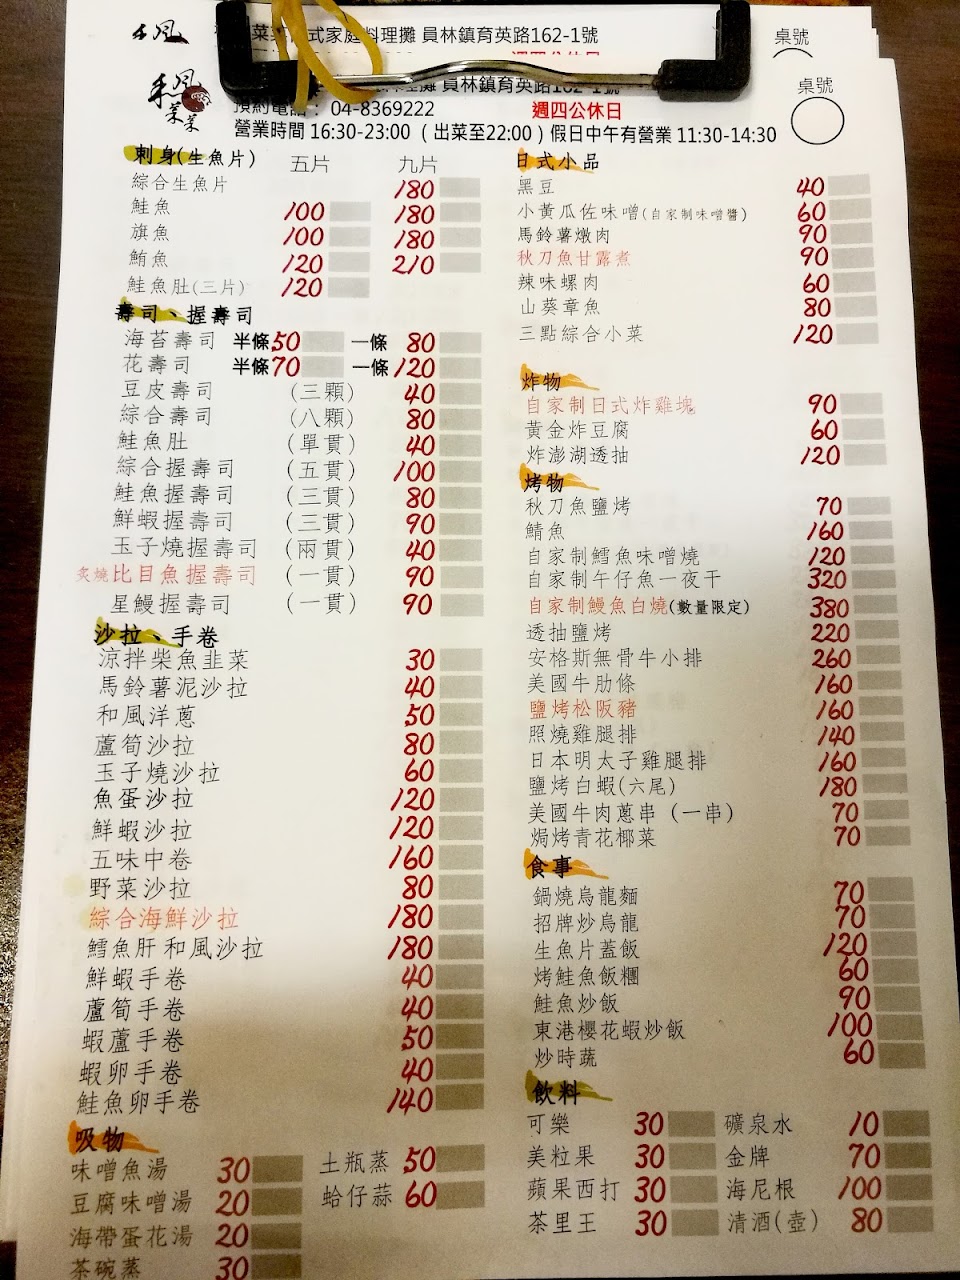 式家庭料理攤 員林鎮育英路162-1號
桌號
禾風
菜菜
員林鎮育英路162-1號
預約電話： 04-8369222
週四公休日
桌號
營業時間 16:30-23:00 ( 出菜至22:00 ) 假日中午有營業 11:30-14:30
刺身(生魚片) 五片 九片
綜合生魚片 180
鮭魚 100 180
旗魚 100 180
鮪魚 120 210
鮭魚肚(三片) 120
壽司、握壽司
海苔壽司 半條50 一條 80
花壽司 半條70 一條120
豆皮壽司 (三顆) 40
綜合壽司 (八顆) 80
鮭魚肚 (單貫) 40
綜合握壽司 (五貫) 100
鮭魚握壽司 (三貫) 80
鮮蝦握壽司 (三貫) 90
玉子燒握壽司 (兩貫) 40
炙燒比目魚握壽司 (一貫) 90
星鰻握壽司 (一貫) 90
沙拉、手卷
涼拌柴魚韭菜 30
馬鈴薯泥沙拉 40
和風洋蔥 50
蘆筍沙拉 80
玉子燒沙拉 60
魚蛋沙拉 120
鮮蝦沙拉 120
五味中卷 160
野菜沙拉 80
綜合海鮮沙拉 180
鱈魚肝和風沙拉 180
鮮蝦手卷 40
蘆筍手卷 40
蝦蘆手卷 50
蝦卵手卷 40
鮭魚卵手卷 140
吸物
味噌魚湯 30 土瓶蒸 50
豆腐味噌湯 20 蛤仔蒜 60
海帶蛋花湯 20
茶碗蒸 30
日式小品
黑豆 40
小黃瓜佐味噌(自家制味噌醬) 60
馬鈴薯燉肉 90
秋刀魚甘露煮 90
辣味螺肉 60
山葵章魚 80
三點綜合小菜 120
炸物
自家制日式炸雞塊 90
黃金炸豆腐 60
炸澎湖透抽 120
烤物
秋刀魚鹽烤 70
鯖魚 160
自家制鱈魚味噌燒 120
自家制午仔魚一夜干 320
自家制鰻魚白燒(數量限定) 380
透抽鹽烤 220
安格斯無骨牛小排 260
美國牛肋條 160
鹽烤松阪豬 160
照燒雞腿排 140
日本明太子雞腿排 160
鹽烤白蝦(六尾) 180
美國牛肉蔥串 (一串) 70
焗烤青花椰菜 70
食事
鍋燒烏龍麵 70
招牌炒烏龍 70
生魚片蓋飯 120
烤鮭魚飯糰 60
鮭魚炒飯 90
東港櫻花蝦炒飯 100
炒時蔬 60
飲料
可樂 30 礦泉水 10
美粒果 30 金牌 70
蘋果西打 30 海尼根 100
茶里王 30 清酒(壺) 80